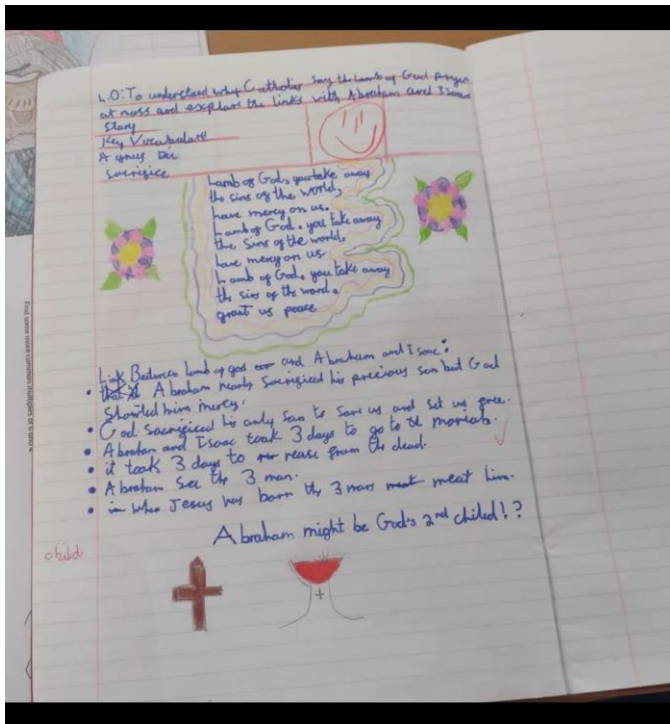 L.O: To understand why Catholics say the Lamb of God prayer
at mass and explain the links with Abraham and Isaac
Story
Key Vocabulary
Agnus Dei
Sacrifice
Lamb of God, you take away
the sins of the world,
have mercy on us.
Lamb of God, you take away
the sins of the world,
have mercy on us.
Lamb of God, you take away
the sins of the word,
grant us peace
Link Between Lamb of god and Abraham and Isaac:
• Abraham nearly sacrificed his precious son but God
showed him mercy.
• God sacrificed his only son to save us and set us free.
• Abraham and Isaac took 3 days to go to Mt moriah.
• it took 3 days to rease from the dead.
• Abraham see the 3 man.
• when Jesus was born the 3 mans meat him.
Abraham might be God's 2nd chiled!?
child
Find some more common multiples of